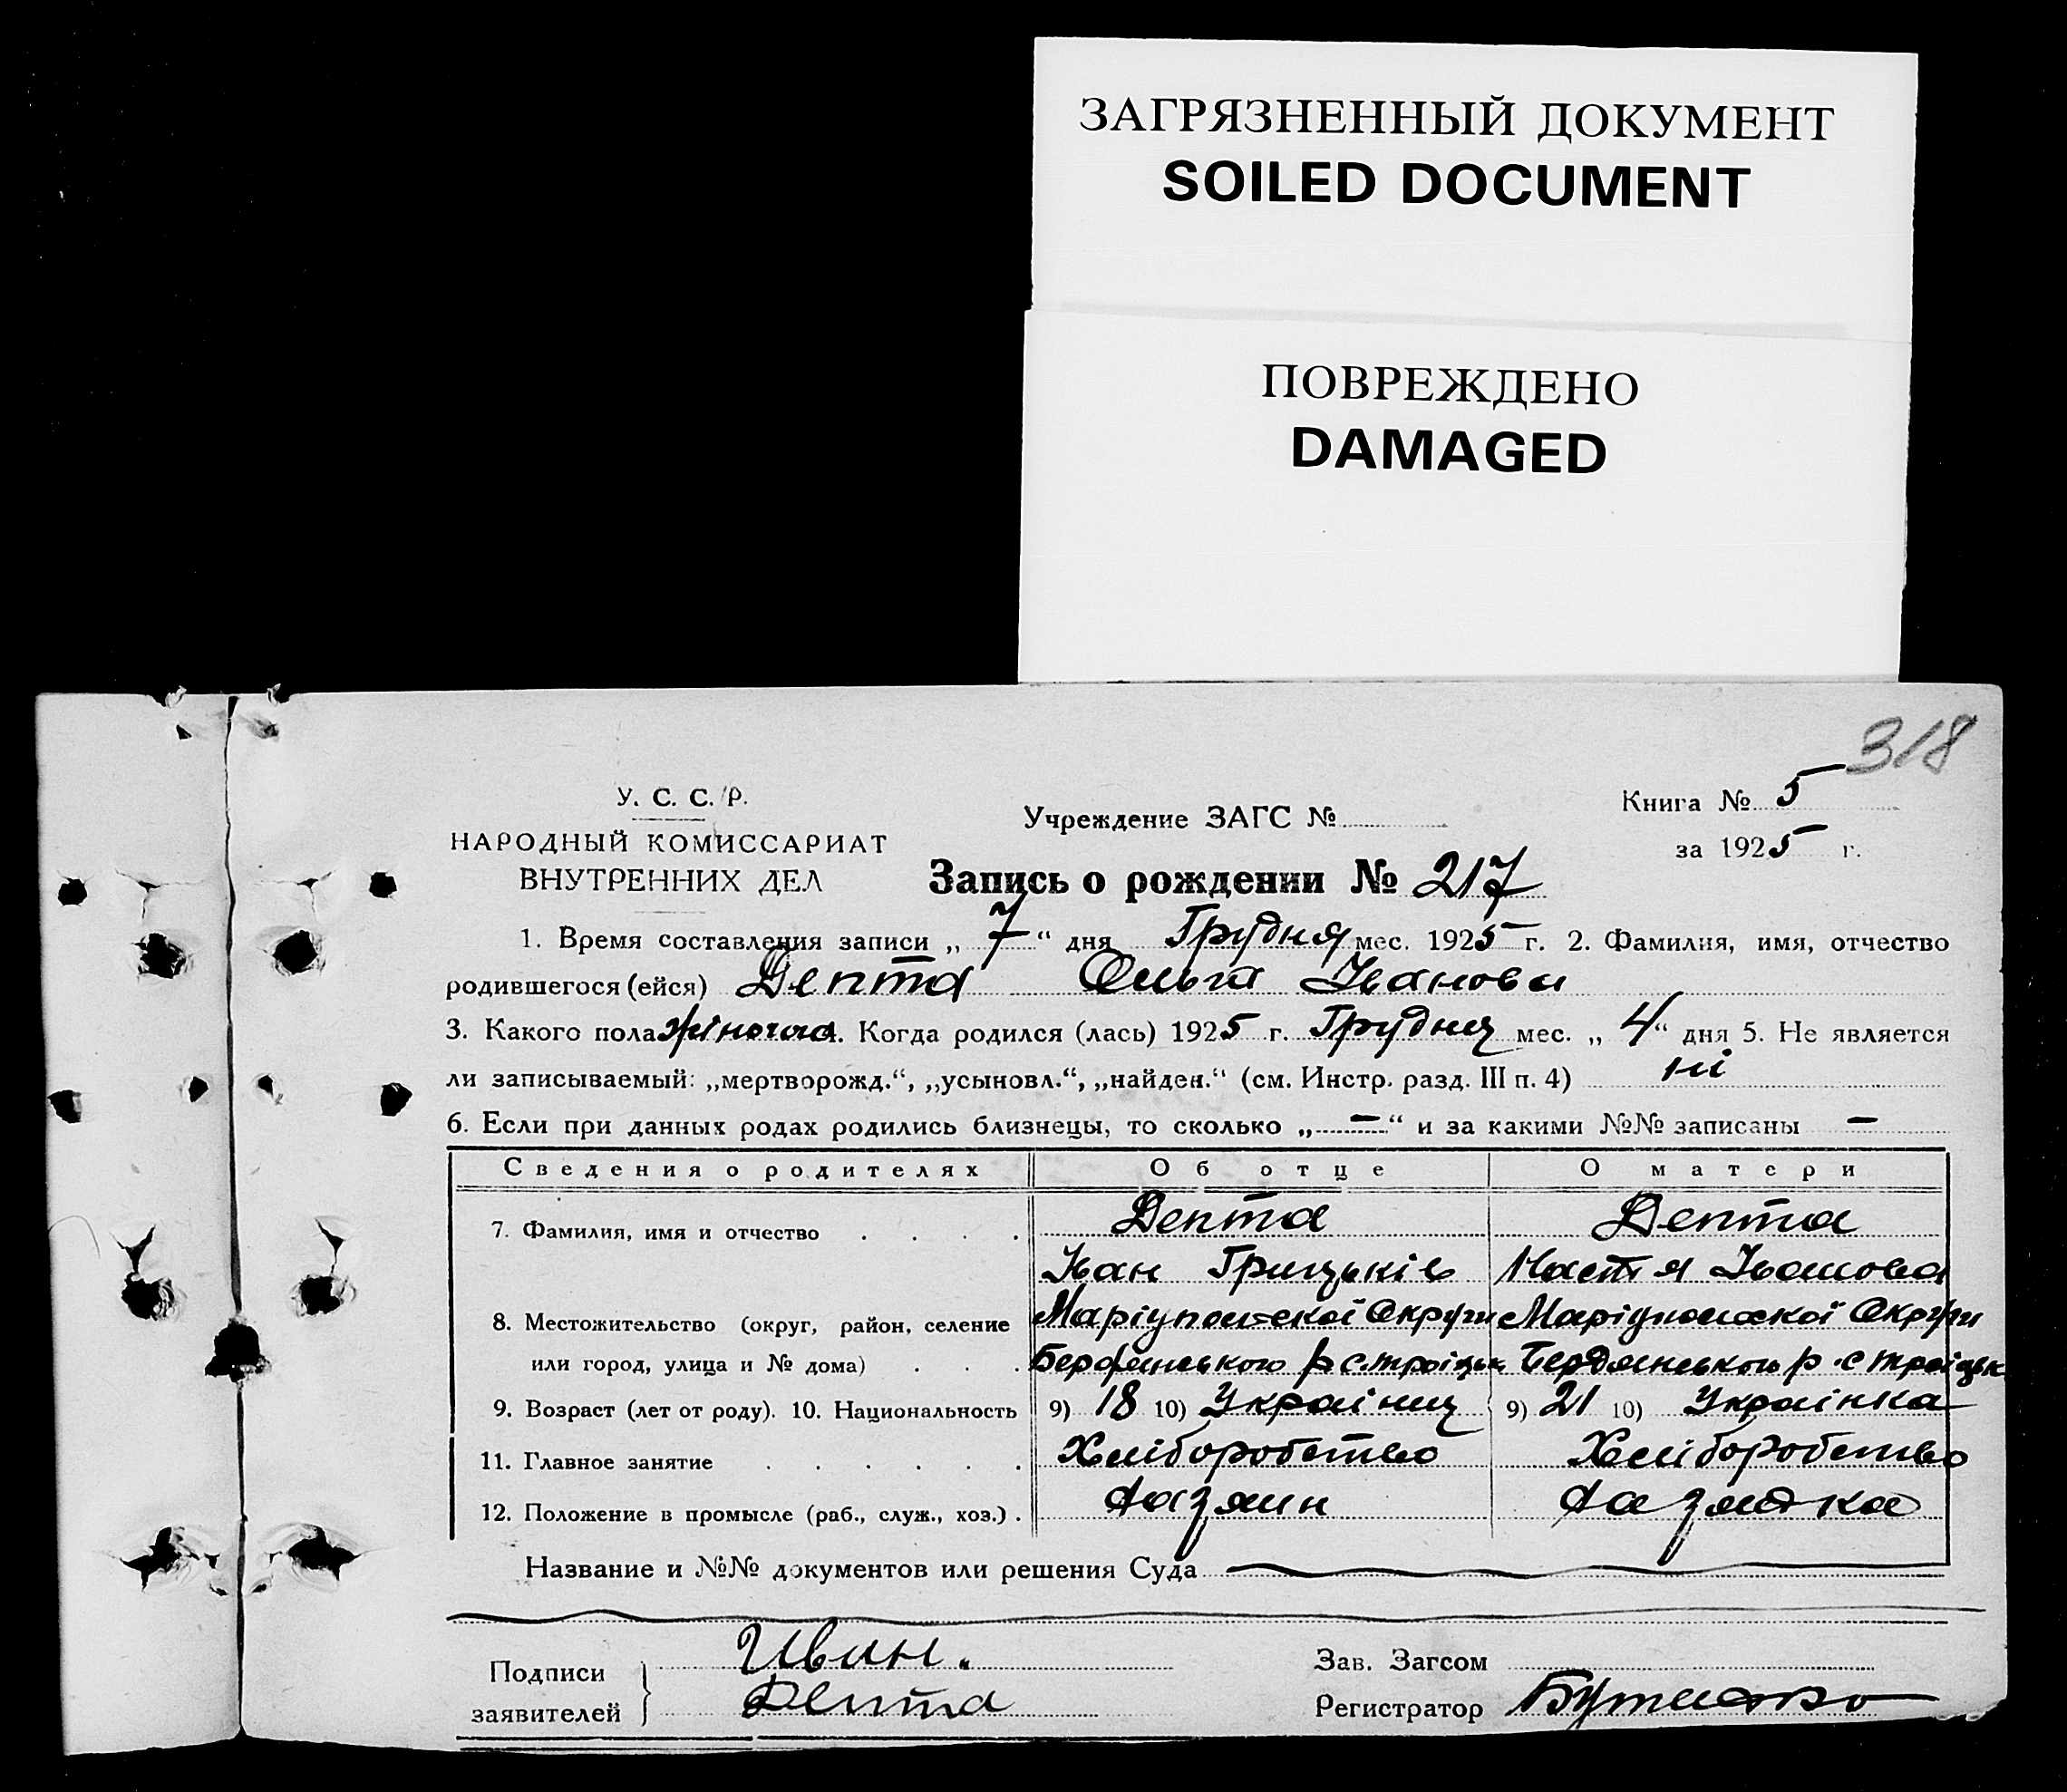 ЗАГРЯЗНЕННЫЙ ДОКУМЕНТ
SOILED DOCUMENT
ПОВРЕЖДЕНО
DAMAGED
318
У. С. С. Р.
НАРОДНЫЙ КОМИССАРИАТ
ВНУТРЕННИХ ДЕЛ
Учреждение ЗАГС №
Книга № 5
за 1925 г.
Запись о рождении № 217
1. Время составления записи „ 7 “ дня Грудня мес. 1925 г. 2. Фамилия, имя, отчество
родившегося (ейся) Депта Ольга Іванова
3. Какого пола жіноча 4. Когда родился (лась) 1925 г. Грудня мес. „ 4 “ дня 5. Не является
ли записываемый: „мертворожд.“, „усыновл.“, „найден.“ (см. Инстр. разд. III п. 4) ні
6. Если при данных родах родились близнецы, то сколько „ — “ и за какими №№ записаны —
Сведения о родителях Об отце О матери
7. Фамилия, имя и отчество . . . . Депта Депта
Іван Грицьків Настя Іванова
8. Местожительство (округ, район, селение Маріупольскоі Округи Маріупольскоі Округи
или город, улица и № дома) . . . Бердянського р с.троіцьк Бердянського р. с троіцьк
9. Возраст (лет от роду). 10. Национальность 9) 18 10) Украінец 9) 21 10) Украінка
11. Главное занятие . . . . . . Хліборобство Хліборобство
12. Положение в промысле (раб., служ., хоз.) .
Название и №№ документов или решения Суда
Подписи заявителей
Иван.
Депта
Зав. Загсом
Регистратор